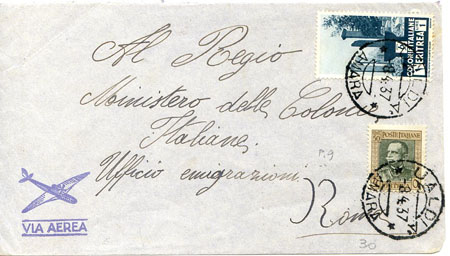 Al Regio
Ministero delle Colonie
Italiane
Ufficio emigrazioni
Roma
VIA AEREA
COLONIE ITALIANE
ERITREA
POSTE ITALIANE
UALDIA
4.37
AMARA
UALDIA
4.37
AMARA
30